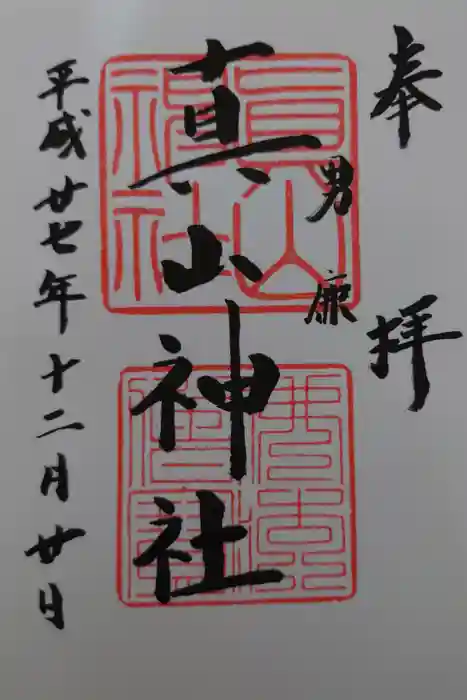 奉拝
男鹿
真山神社
平成廿七年十二月廿日
眞山神社